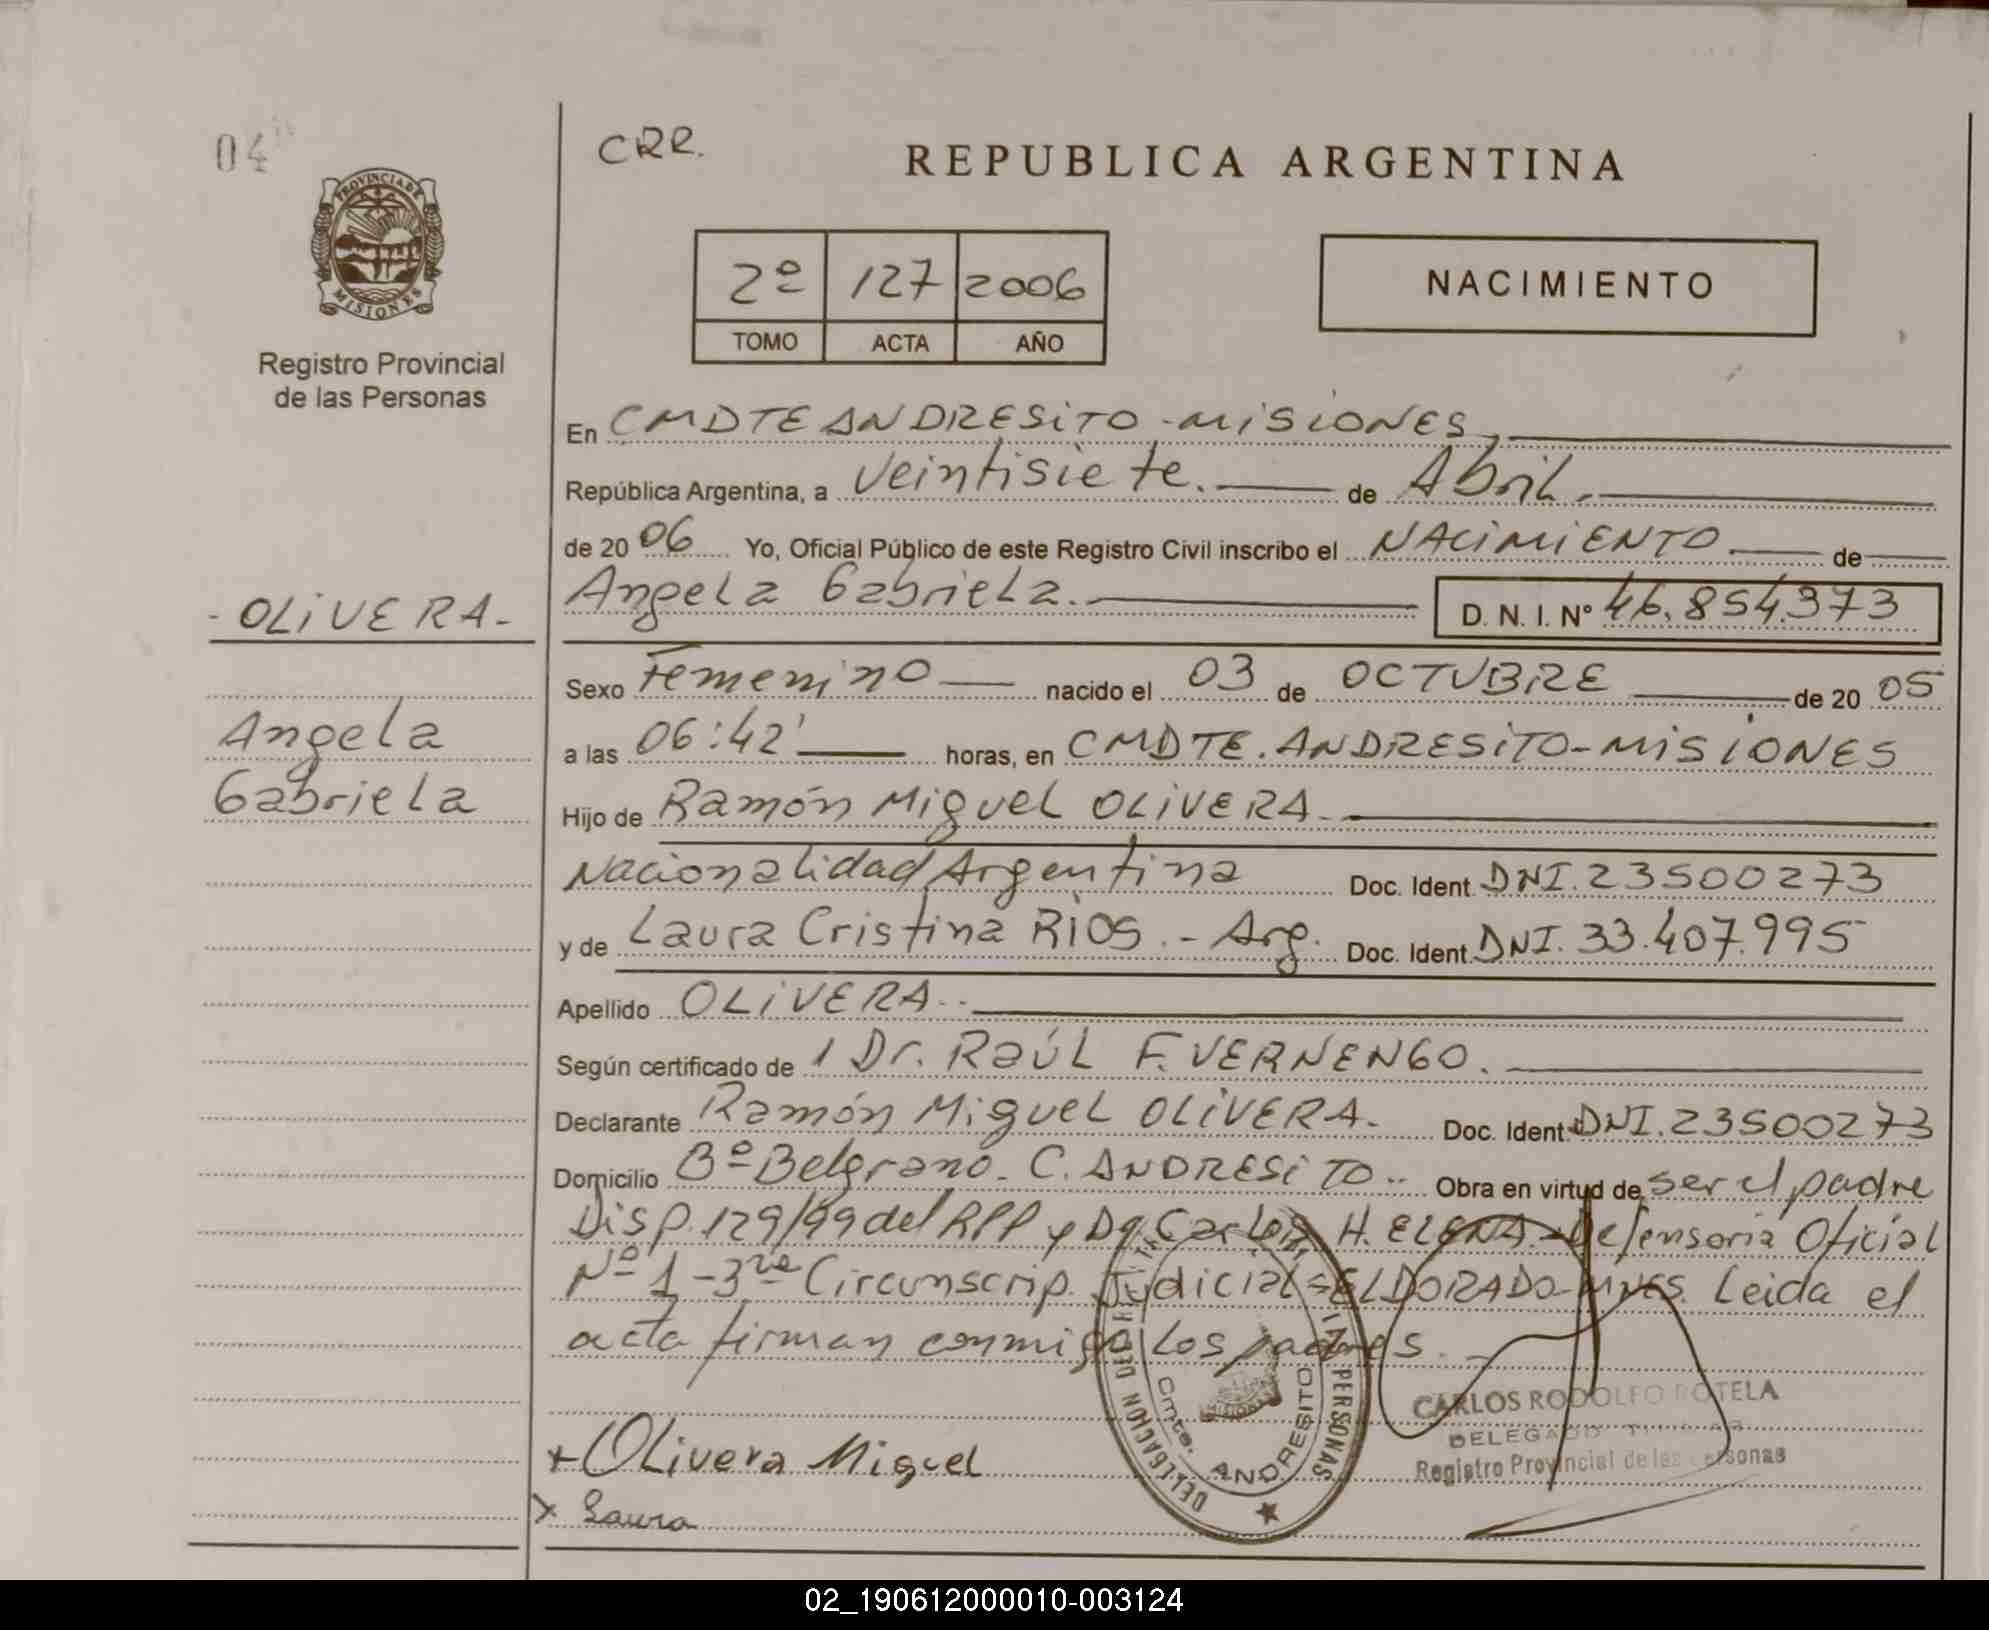 04
CRR.
REPUBLICA ARGENTINA
PROVINCIA DE
MISIONES
Registro Provincial
de las Personas
2º 127 2006
TOMO ACTA AÑO
NACIMIENTO
En CMDTE ANDRESITO - MISIONES,
República Argentina, a Veintisiete. de Abril.
de 20 06 Yo, Oficial Público de este Registro Civil inscribo el NACIMIENTO de
Angela Gabriela. D. N. I. Nº 46.854.373
- OLIVERA -
Angela
Gabriela
Sexo Femenino nacido el 03 de OCTUBRE de 20 05
a las 06:42' horas, en CMDTE. ANDRESITO - MISIONES
Hijo de Ramón Miguel OLIVERA.
Nacionalidad Argentina Doc. Ident. DNI. 23500273
y de Laura Cristina RIOS. - Arg. Doc. Ident. DNI. 33.407.995
Apellido OLIVERA..
Según certificado de 1 Dr. Raúl F. VERNENGO.
Declarante Ramón Miguel OLIVERA. Doc. Ident. DNI. 23500273
Domicilio Bº Belgrano - C. ANDRESITO.. Obra en virtud de ser el padre
Disp. 129/99 del RPP y Carlos H. ELENA - Defensoria Oficial
Nº 1 - 3ra Circunscrip. Judicial = ELDORADO - MNES. Leida el
acta firman conmigo Los padres.
DELEGACION PERSONAS
Cmte. ANDRESITO
CARLOS RODOLFO ROTELA
DELEGADO TITULAR
Registro Provincial de las Personas
x Olivera Miguel
x Laura
02_190612000010-003124